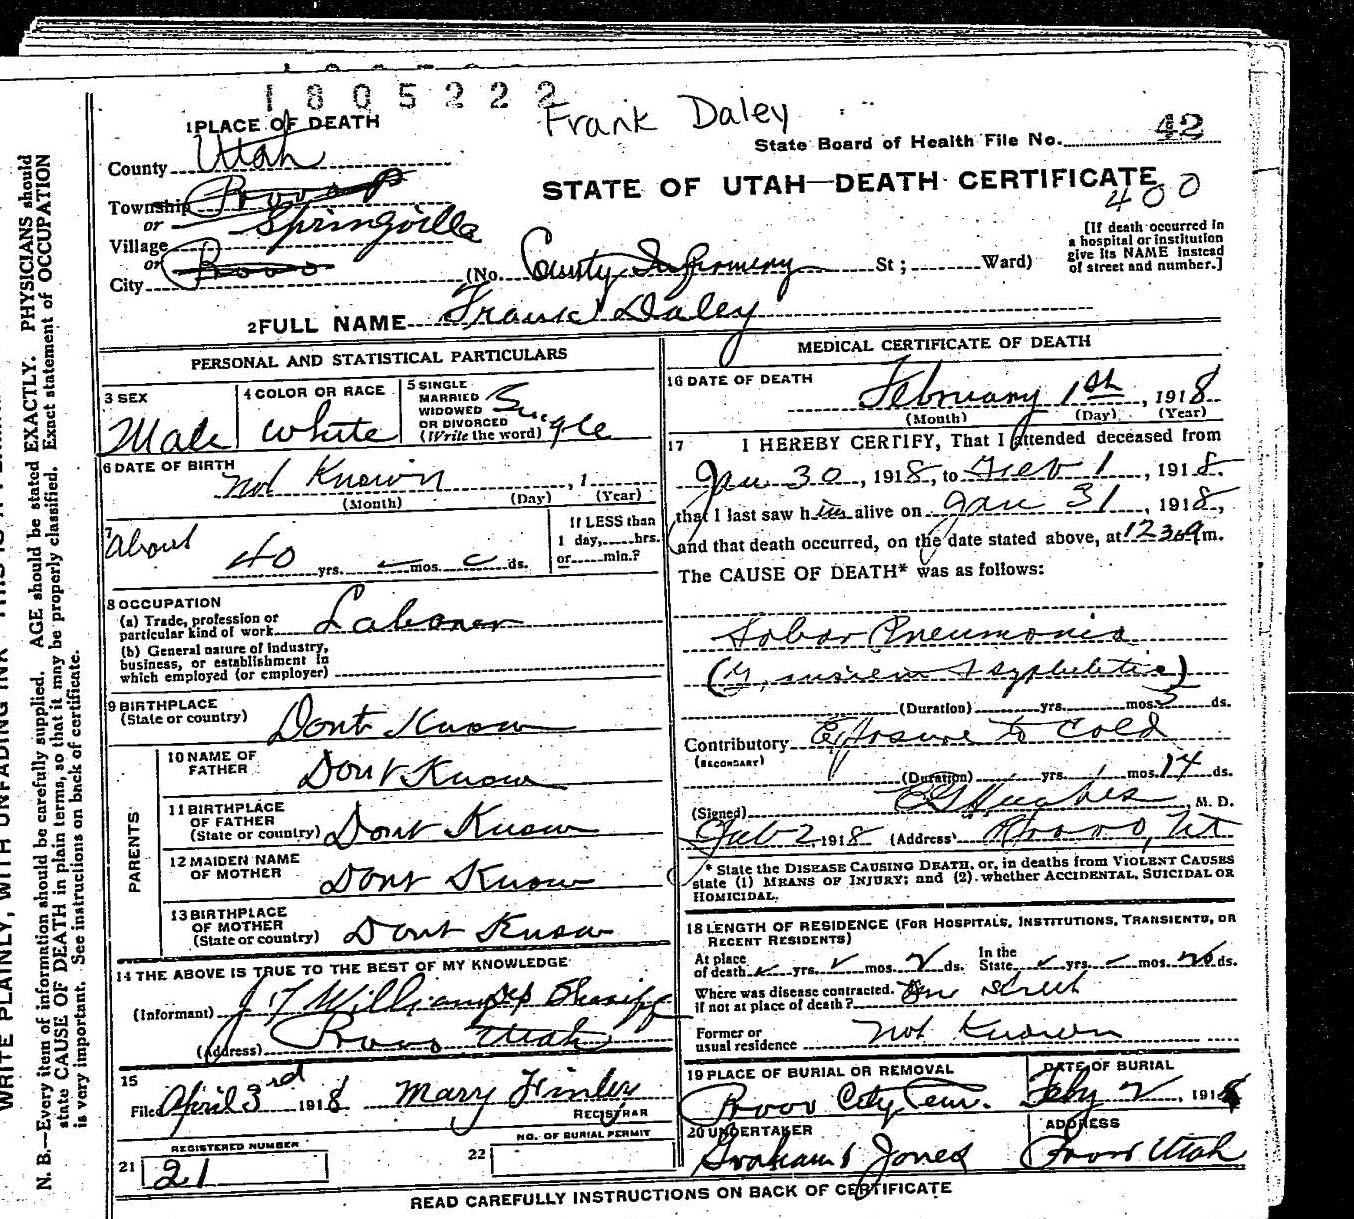 1805222
Frank Daley
1 PLACE OF DEATH
State Board of Health File No. 42
County Utah
STATE OF UTAH—DEATH CERTIFICATE
400
Township Provo
or Springville
Village
or
City Provo (No. County Infirmery St; Ward)
[If death occurred in
a hospital or institution
give its NAME instead
of street and number.]
2 FULL NAME Frank Daley
PERSONAL AND STATISTICAL PARTICULARS
3 SEX
Male
4 COLOR OR RACE
White
5 SINGLE
MARRIED
WIDOWED
OR DIVORCED
(Write the word)
Single
6 DATE OF BIRTH
not Known , 1
(Month) (Day) (Year)
7
About
40 yrs. mos. ds.
If LESS than
1 day, hrs.
or min.?
8 OCCUPATION
(a) Trade, profession or
particular kind of work Laborer
(b) General nature of industry,
business, or establishment in
which employed (or employer)
9 BIRTHPLACE
(State or country) Dont Know
PARENTS
10 NAME OF
FATHER Dont Know
11 BIRTHPLACE
OF FATHER
(State or country) Dont Know
12 MAIDEN NAME
OF MOTHER Dont Know
13 BIRTHPLACE
OF MOTHER
(State or country) Dont Know
14 THE ABOVE IS TRUE TO THE BEST OF MY KNOWLEDGE
(Informant) Williams Dep Sheriff
(Address) Provo Utah
15
Filed April 3rd 1918 Mary Finley
REGISTRAR
REGISTERED NUMBER
21 21
NO. OF BURIAL PERMIT
22
MEDICAL CERTIFICATE OF DEATH
16 DATE OF DEATH
February 1st, 1918
(Month) (Day) (Year)
17 I HEREBY CERTIFY, That I attended deceased from
Jan 30, 1918, to Feb 1, 1918.
that I last saw him alive on Jan 31, 1918,
and that death occurred, on the date stated above, at m.
The CAUSE OF DEATH* was as follows:
Lobar Pneumonia
syphilitic)
(Duration) yrs. mos. 3 ds.
Contributory Exposure to cold
(SECONDARY)
(Duration) yrs. mos. 14 ds.
(Signed) Hughes, M. D.
Feb 2, 1918 (Address) Provo, Ut
* State the DISEASE CAUSING DEATH, or, in deaths from VIOLENT CAUSES
state (1) MEANS OF INJURY; and (2) whether ACCIDENTAL, SUICIDAL OR
HOMICIDAL.
18 LENGTH OF RESIDENCE (FOR HOSPITALS, INSTITUTIONS, TRANSIENTS, OR
RECENT RESIDENTS)
At place
of death yrs. mos. 2 ds.
In the
State yrs. mos. ds.
Where was disease contracted.
if not at place of death? street
Former or
usual residence not Known
19 PLACE OF BURIAL OR REMOVAL
Provo City Cem.
DATE OF BURIAL
Feby 2, 1918
20 UNDERTAKER
Graham & Jones
ADDRESS
Provo Utah
READ CAREFULLY INSTRUCTIONS ON BACK OF CERTIFICATE
N. B.—Every item of information should be carefully supplied. AGE should be stated EXACTLY. PHYSICIANS should
state CAUSE OF DEATH in plain terms, so that it may be properly classified. Exact statement of OCCUPATION
is very important. See instructions on back of certificate.
WRITE PLAINLY, WITH UNFADING INK